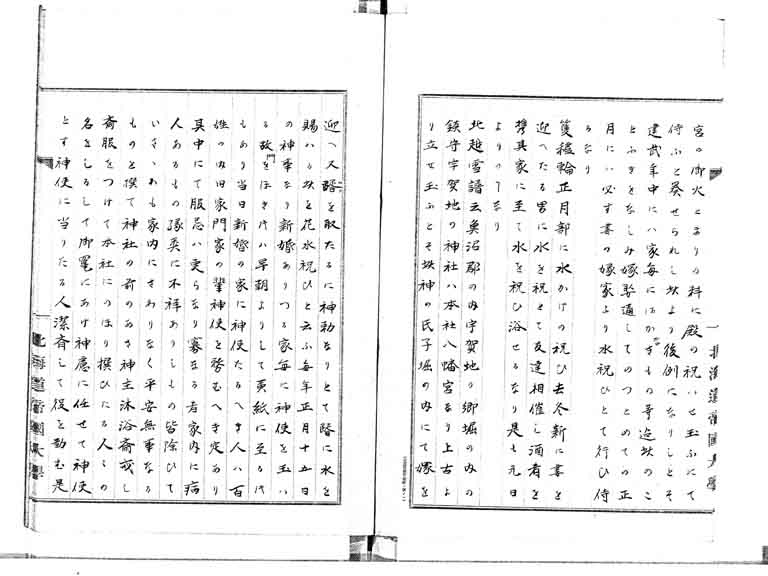 宮の御火とまりの料に殿の祝いせ玉ふにて
侍ふと葵せられし放より後例になりしとそ
建武年中にハ家毎にほかきもの等迄放のこ
とふきをなしみ嫁娶通してのつとめての正
月にハ必す妻の嫁家より水祝ひとて行ひ侍
るなり
篗纑輪正月部に水かけの祝ひ去冬新に妻を
迎へたる男に水を祝とて友達相催し酒肴を
携其家に至て水を祝ひ浴せるなり是も元日
よりのことなり
北越雪譜云魚沼郡の内宇賀地の郷堀の内の
鎮守宇賀地の神社ハ本社八幡宮なり上古よ
り立せ玉ふとそ此神の氏子堀の内にて嫁を
迎へ又壻を取たるに神勅なりとて壻に水を
賜ハる此を花水祝ひと云ふ毎年正月十五日
の神事なり新婚ありつる家毎に神使を玉ハ
る故門をほきけハ早朝よりして黄紙に至るけ
もあり当日新婚の家に神使たるへき人ハ百
姓の内旧家門家の輩神使を務むへき定あり
其中にて服忌ハ更なり寡なる者家内に病
人あるもの縁英に不祥ありしもの皆除ひて
いさゝわも家内にさわりなく平安無事なる
ものと撰て神社の前のあさ神主沐浴斎戒し
斎服をつけて本社にのほり撰ひたる人々の
名をしるして御鬮にあけ神慮に任せて神使
とす神使に当りたる人潔斉して役を勤む是
北海道帝國大學
北海道帝國大學